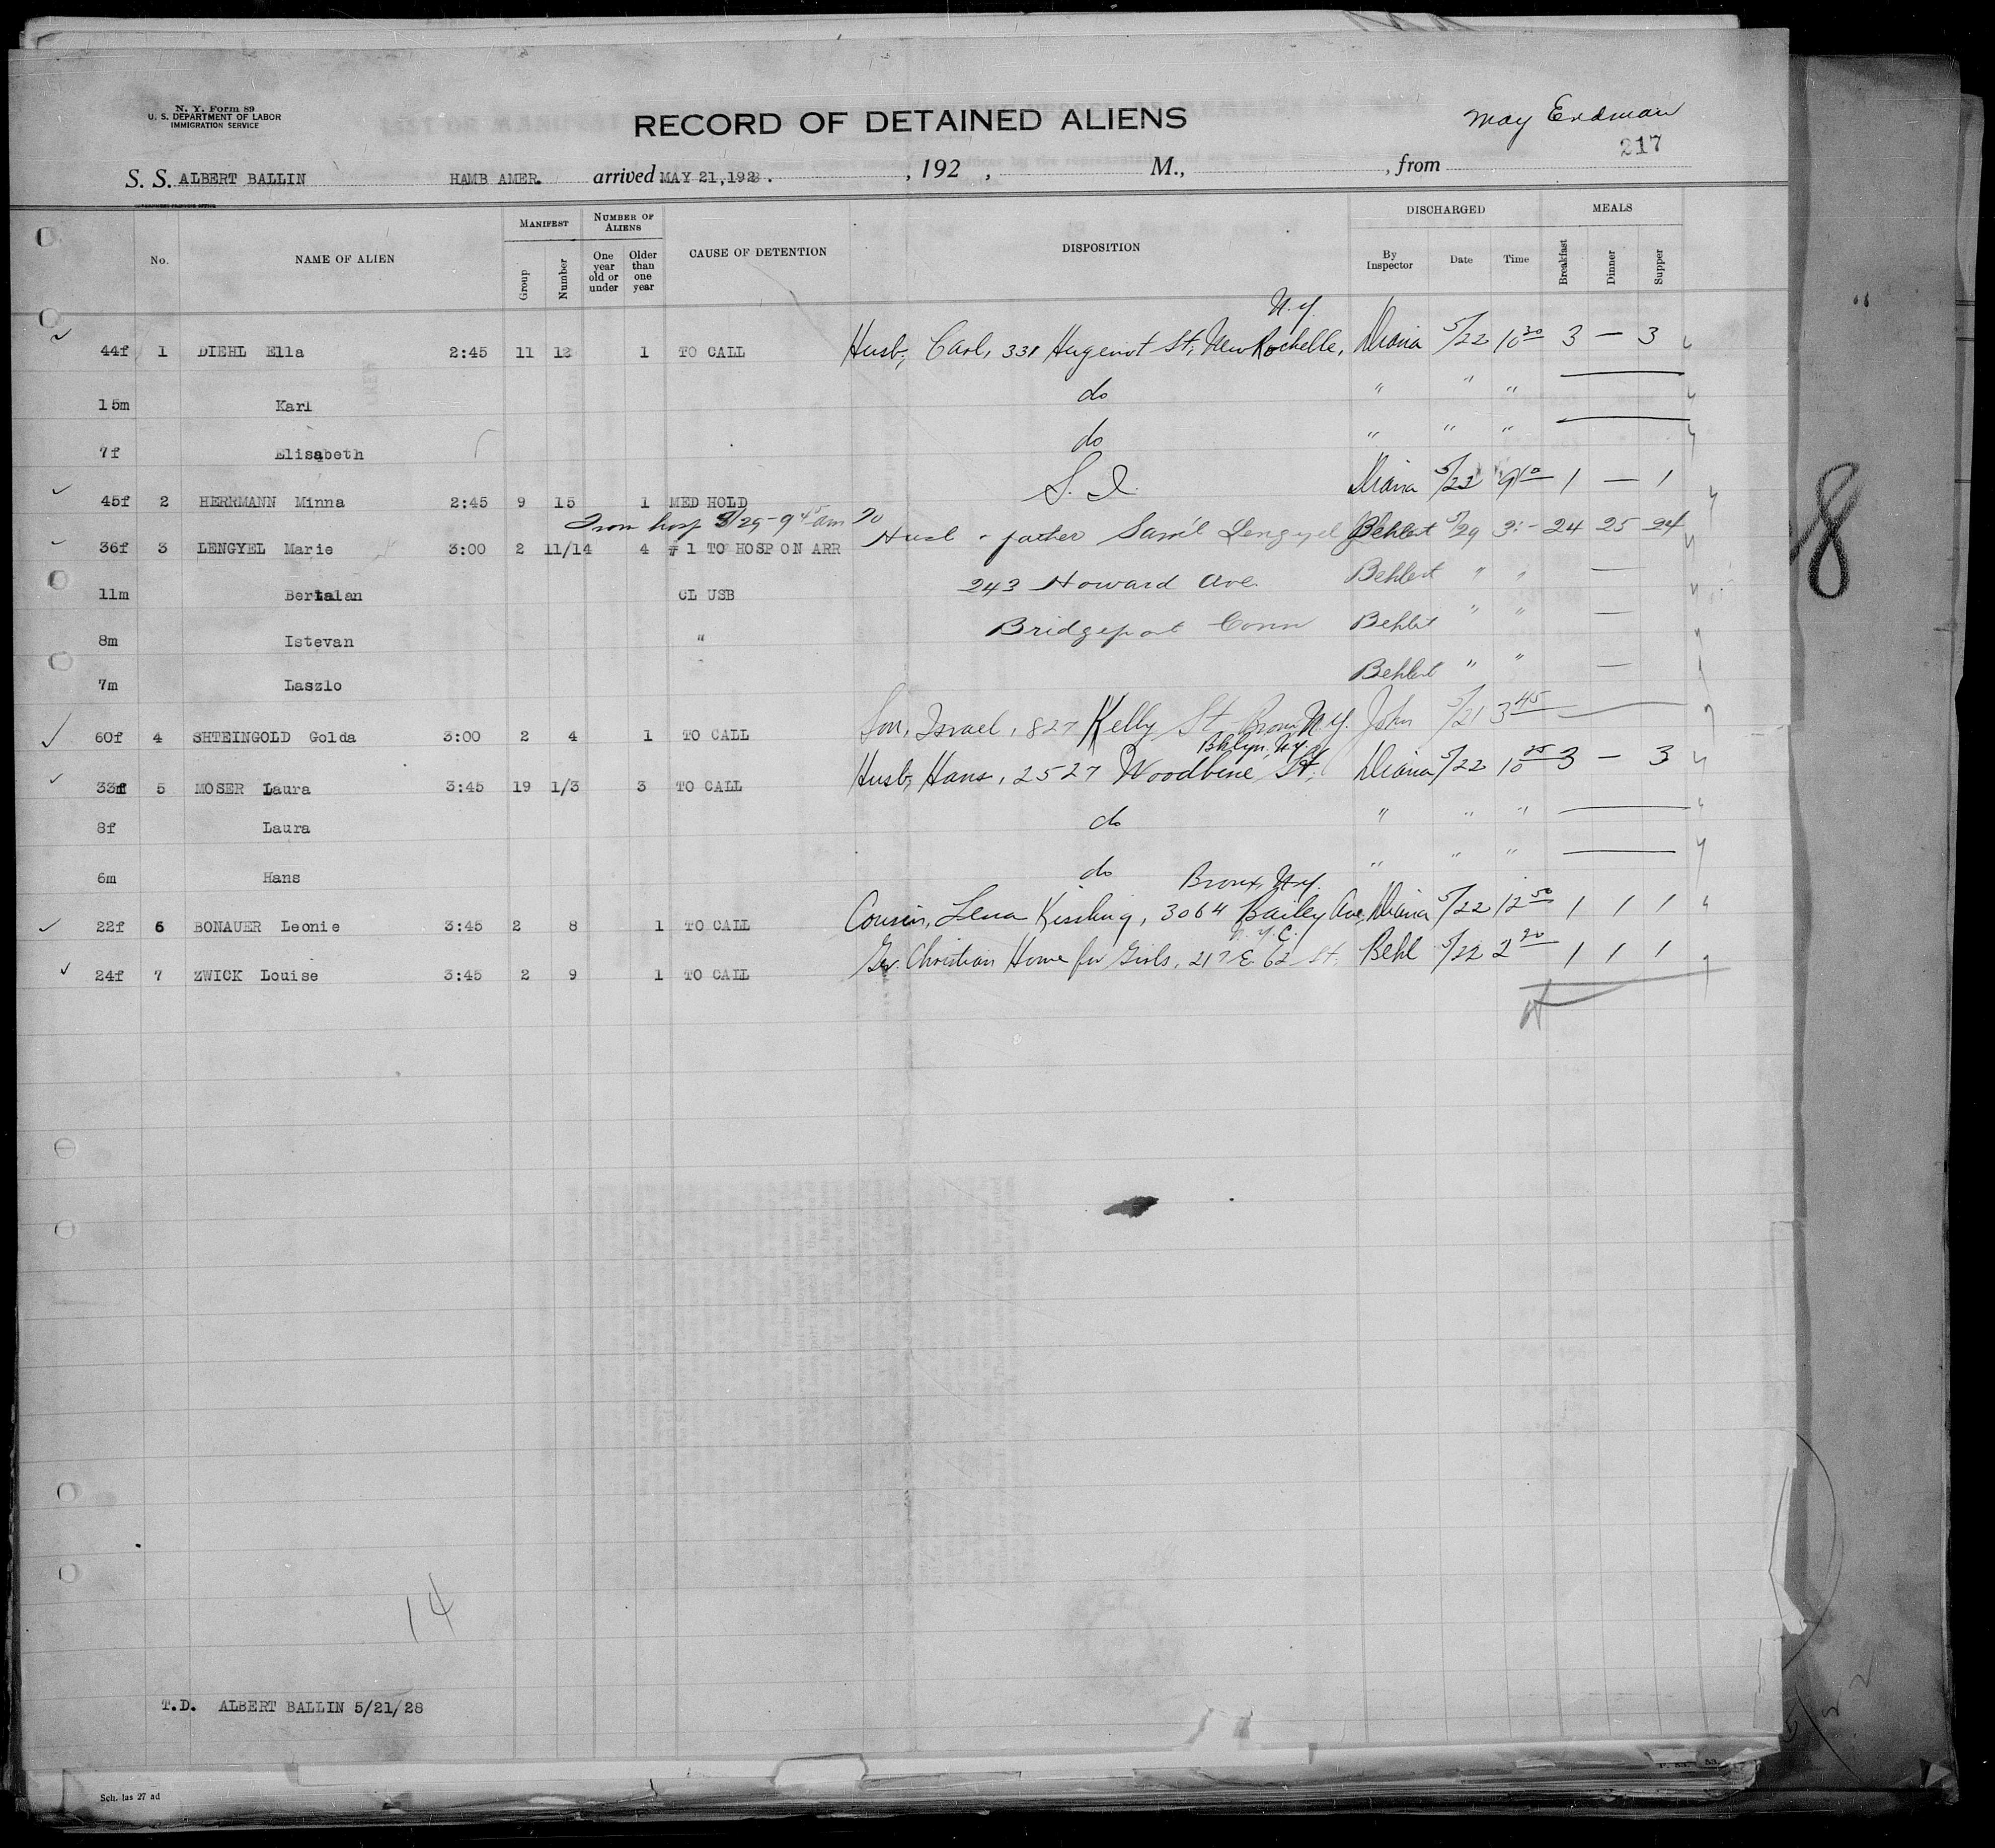 N. Y. Form 89
U. S. DEPARTMENT OF LABOR
IMMIGRATION SERVICE
RECORD OF DETAINED ALIENS
May Erdman
217
S. S. ALBERT BALLIN HAMB AMER. arrived MAY 21, 1928. , 192 , M., , from
No. NAME OF ALIEN MANIFEST Group Number NUMBER OF ALIENS One year old or under Older than one year CAUSE OF DETENTION DISPOSITION DISCHARGED By Inspector Date Time MEALS Breakfast Dinner Supper
N.Y.
44f 1 DIEHL Ella 2:45 11 12 1 TO CALL Husb, Carl, 331 Hugenot St, New Rochelle, Diana 5/22 10 30 3 — 3
15m Karl do " " "
7f Elisabeth do " " "
45f 2 HERRMANN Minna 2:45 9 15 1 MED HOLD S. I. Diana 5/22 9 10 1 — 1
From hosp 5/29 - 9 45 am To
36f 3 LENGYEL Marie 3:00 2 11/14 4 # 1 TO HOSP ON ARR Husb - father Sam'l Lengyel Behlert 5/29 3:- 24 25 24
11m Bertalan CL USB 243 Howard Ave Behlert " " —
8m Istevan " Bridgeport Conn Behlert " " —
7m Laszlo Behlert " " —
60f 4 SHTEINGOLD Golda 3:00 2 4 1 TO CALL Son, Israel, 827 Kelly St Bronx N.Y. John 5/21 3 45
Bklyn, N.Y.
33f 5 MOSER Laura 3:45 19 1/3 3 TO CALL Husb, Hans, 2527 Woodbine St, Diana 5/22 10 25 3 — 3
8f Laura do " " "
6m Hans do " " "
Bronx, N.Y.
22f 6 BONAUER Leonie 3:45 2 8 1 TO CALL Cousin, Lena Kissling, 3064 Bailey Ave, Diana 5/22 12 50 1 1 1
N.Y.C.
24f 7 ZWICK Louise 3:45 2 9 1 TO CALL Ger. Christian Home for Girls, 217 E. 62 St, Behl 5/22 2 20 1 1 1
14
T.D. ALBERT BALLIN 5/21/28
Sch. las 27 ad
8